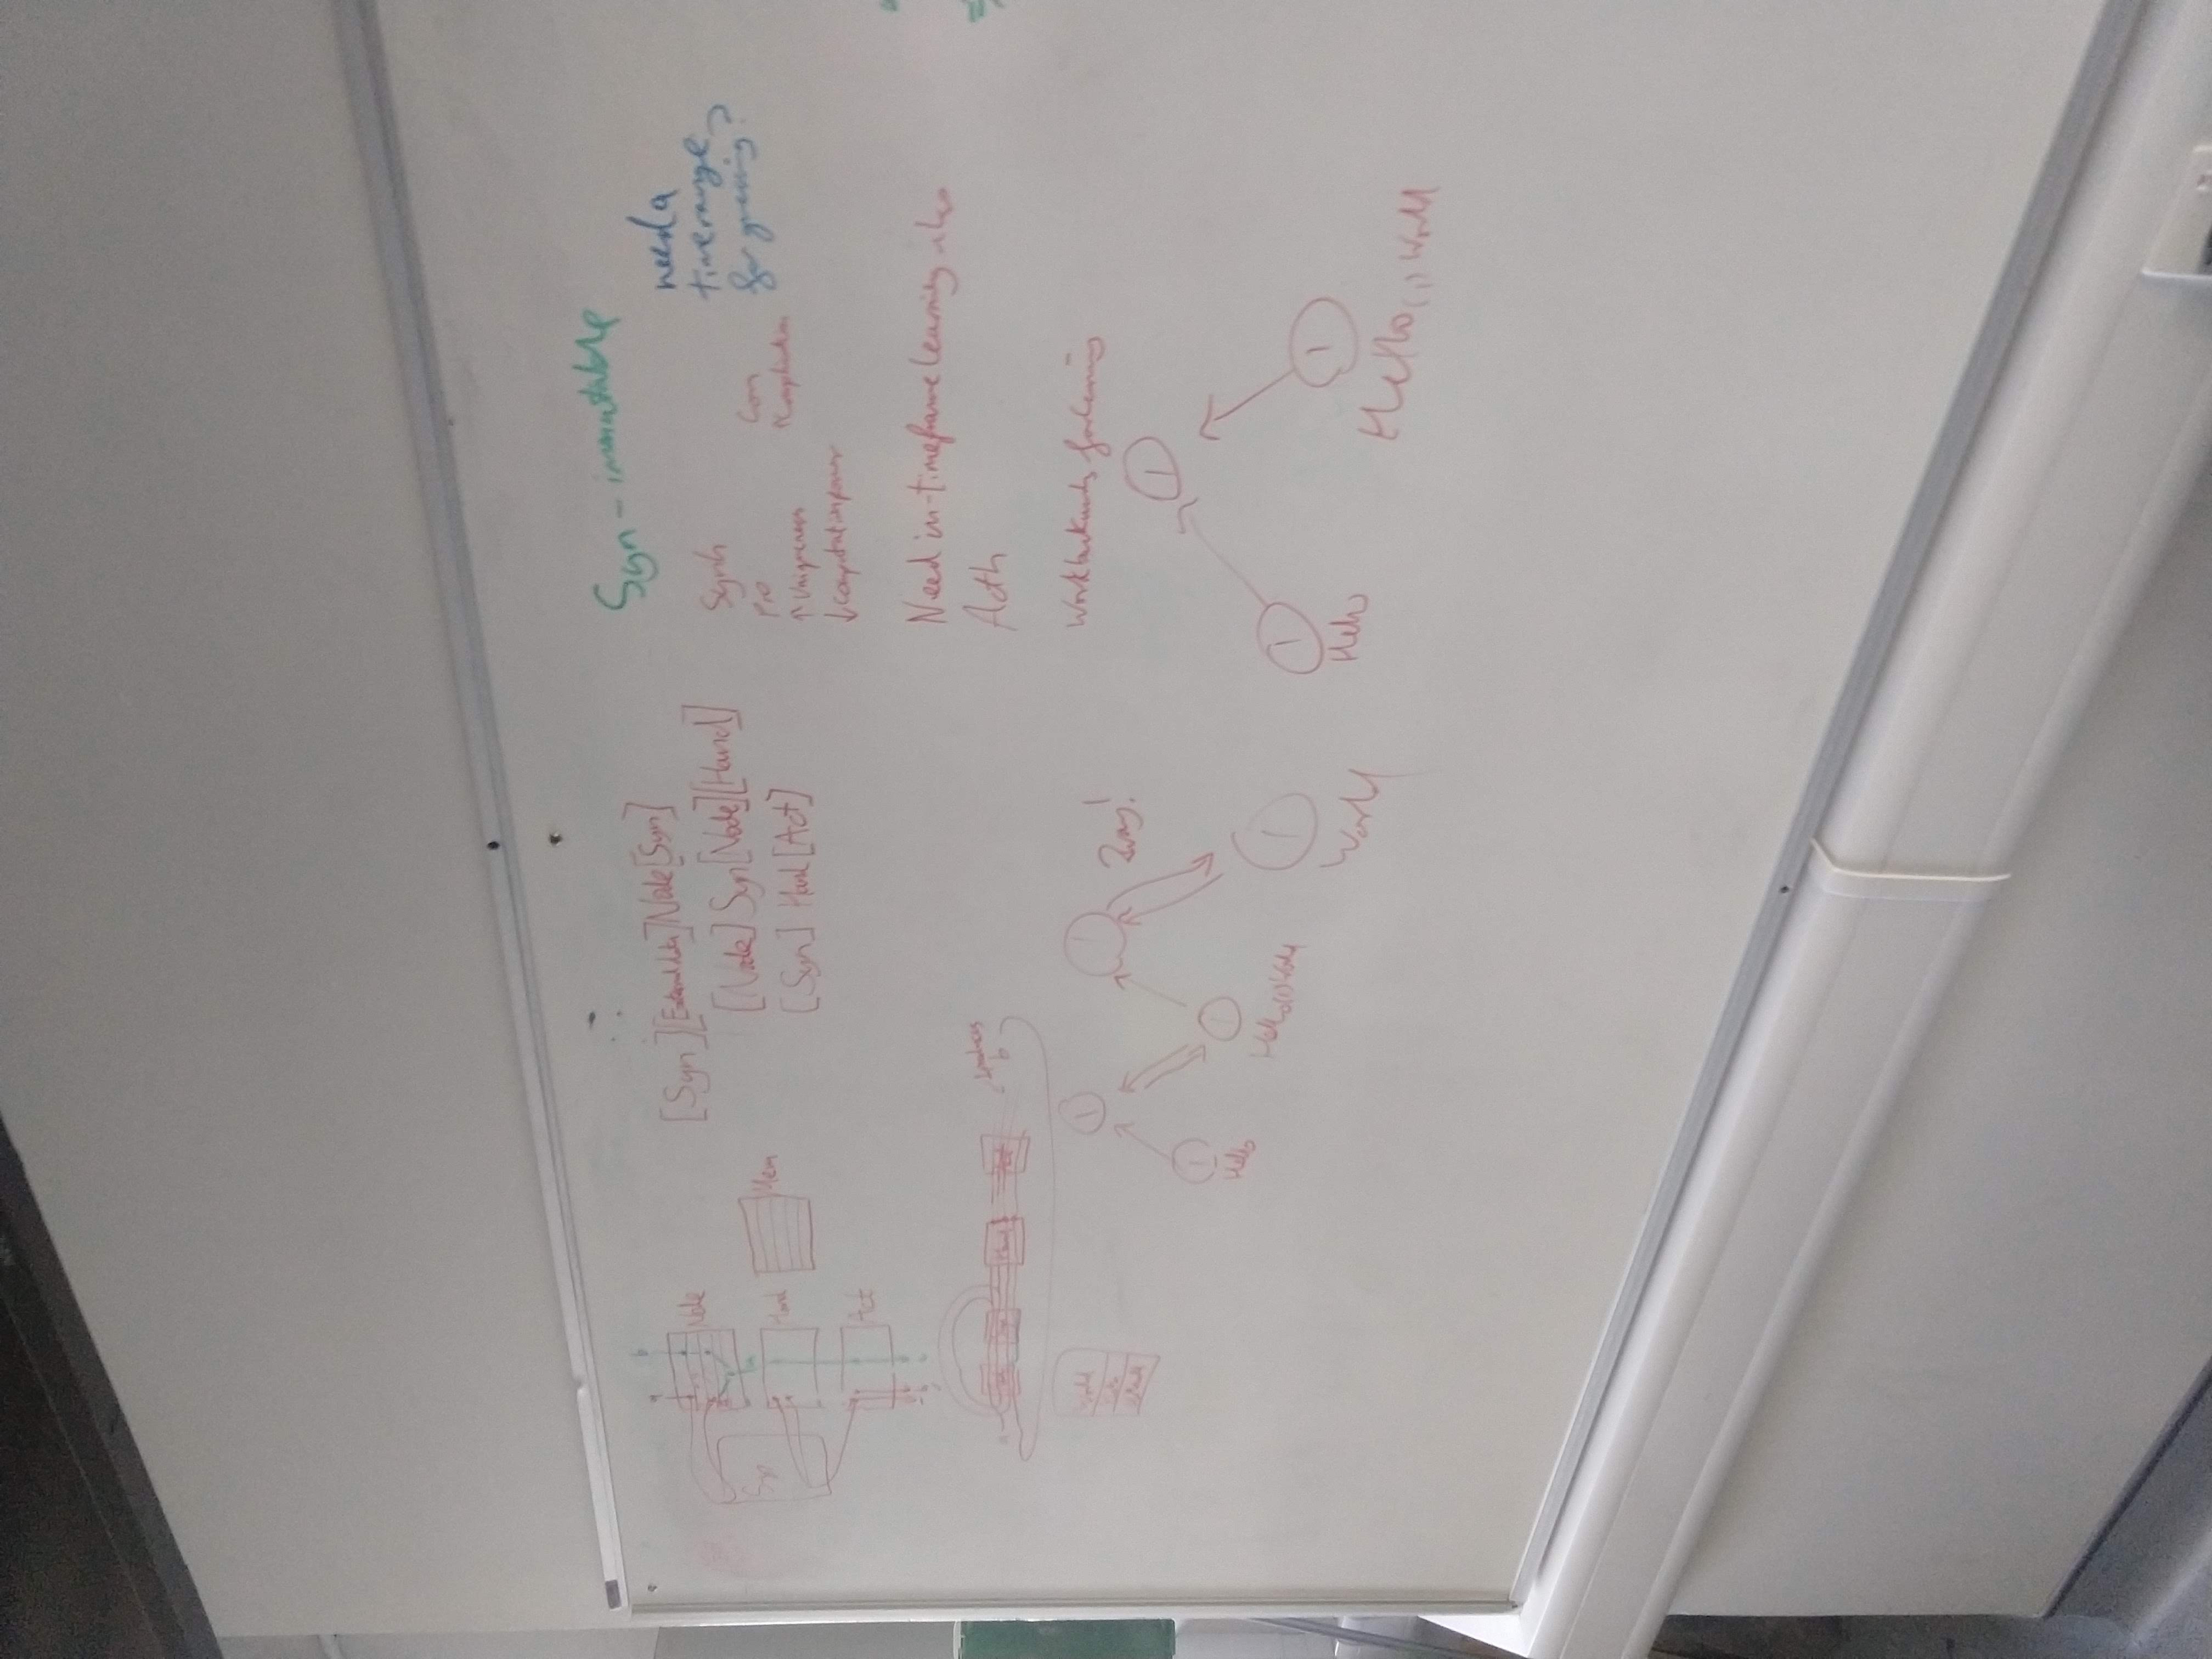 a
b
Node
Syn
Hand
Mem
Act
[Syn][External data]Node[Syn]
[Node] Syn[Node][Hand]
[Syn] Hand[Act]
Hand
Act
b
1
1
Hello
1
Hello(,)World
1
2way!
1
World
Syn-immutable
need a
timerange
for guessing?
Synh
Pro
Con
↑Uniqueness
↑Complication
↓Computation power
Need in-timeframe learning also
Acth
Work backwards for learning
1
1
Hello
1
Hello(,) World